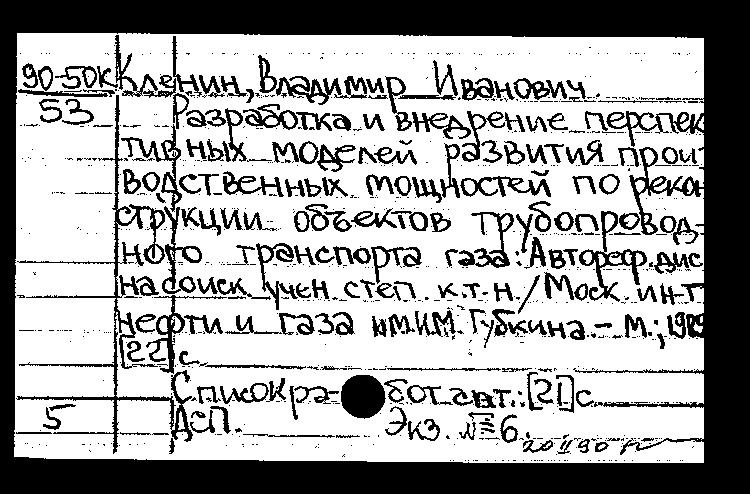 90-50К Кленин, Владимир Иванович.
53 Разработка и внедрение перспек
тивных моделей развития прои
водственных мощностей по рекон
струкции объектов трубопровод-
ного транспорта газа: Автореф. дис
на соиск. учен. степ. к.т.н. / Моск. ин-т
нефти и газа им. И.М. Губкина. - М.; 1989
[22] с
Список ра- бот авт.: [21] с
5 ДСП. Экз. № 6.
20 II 90